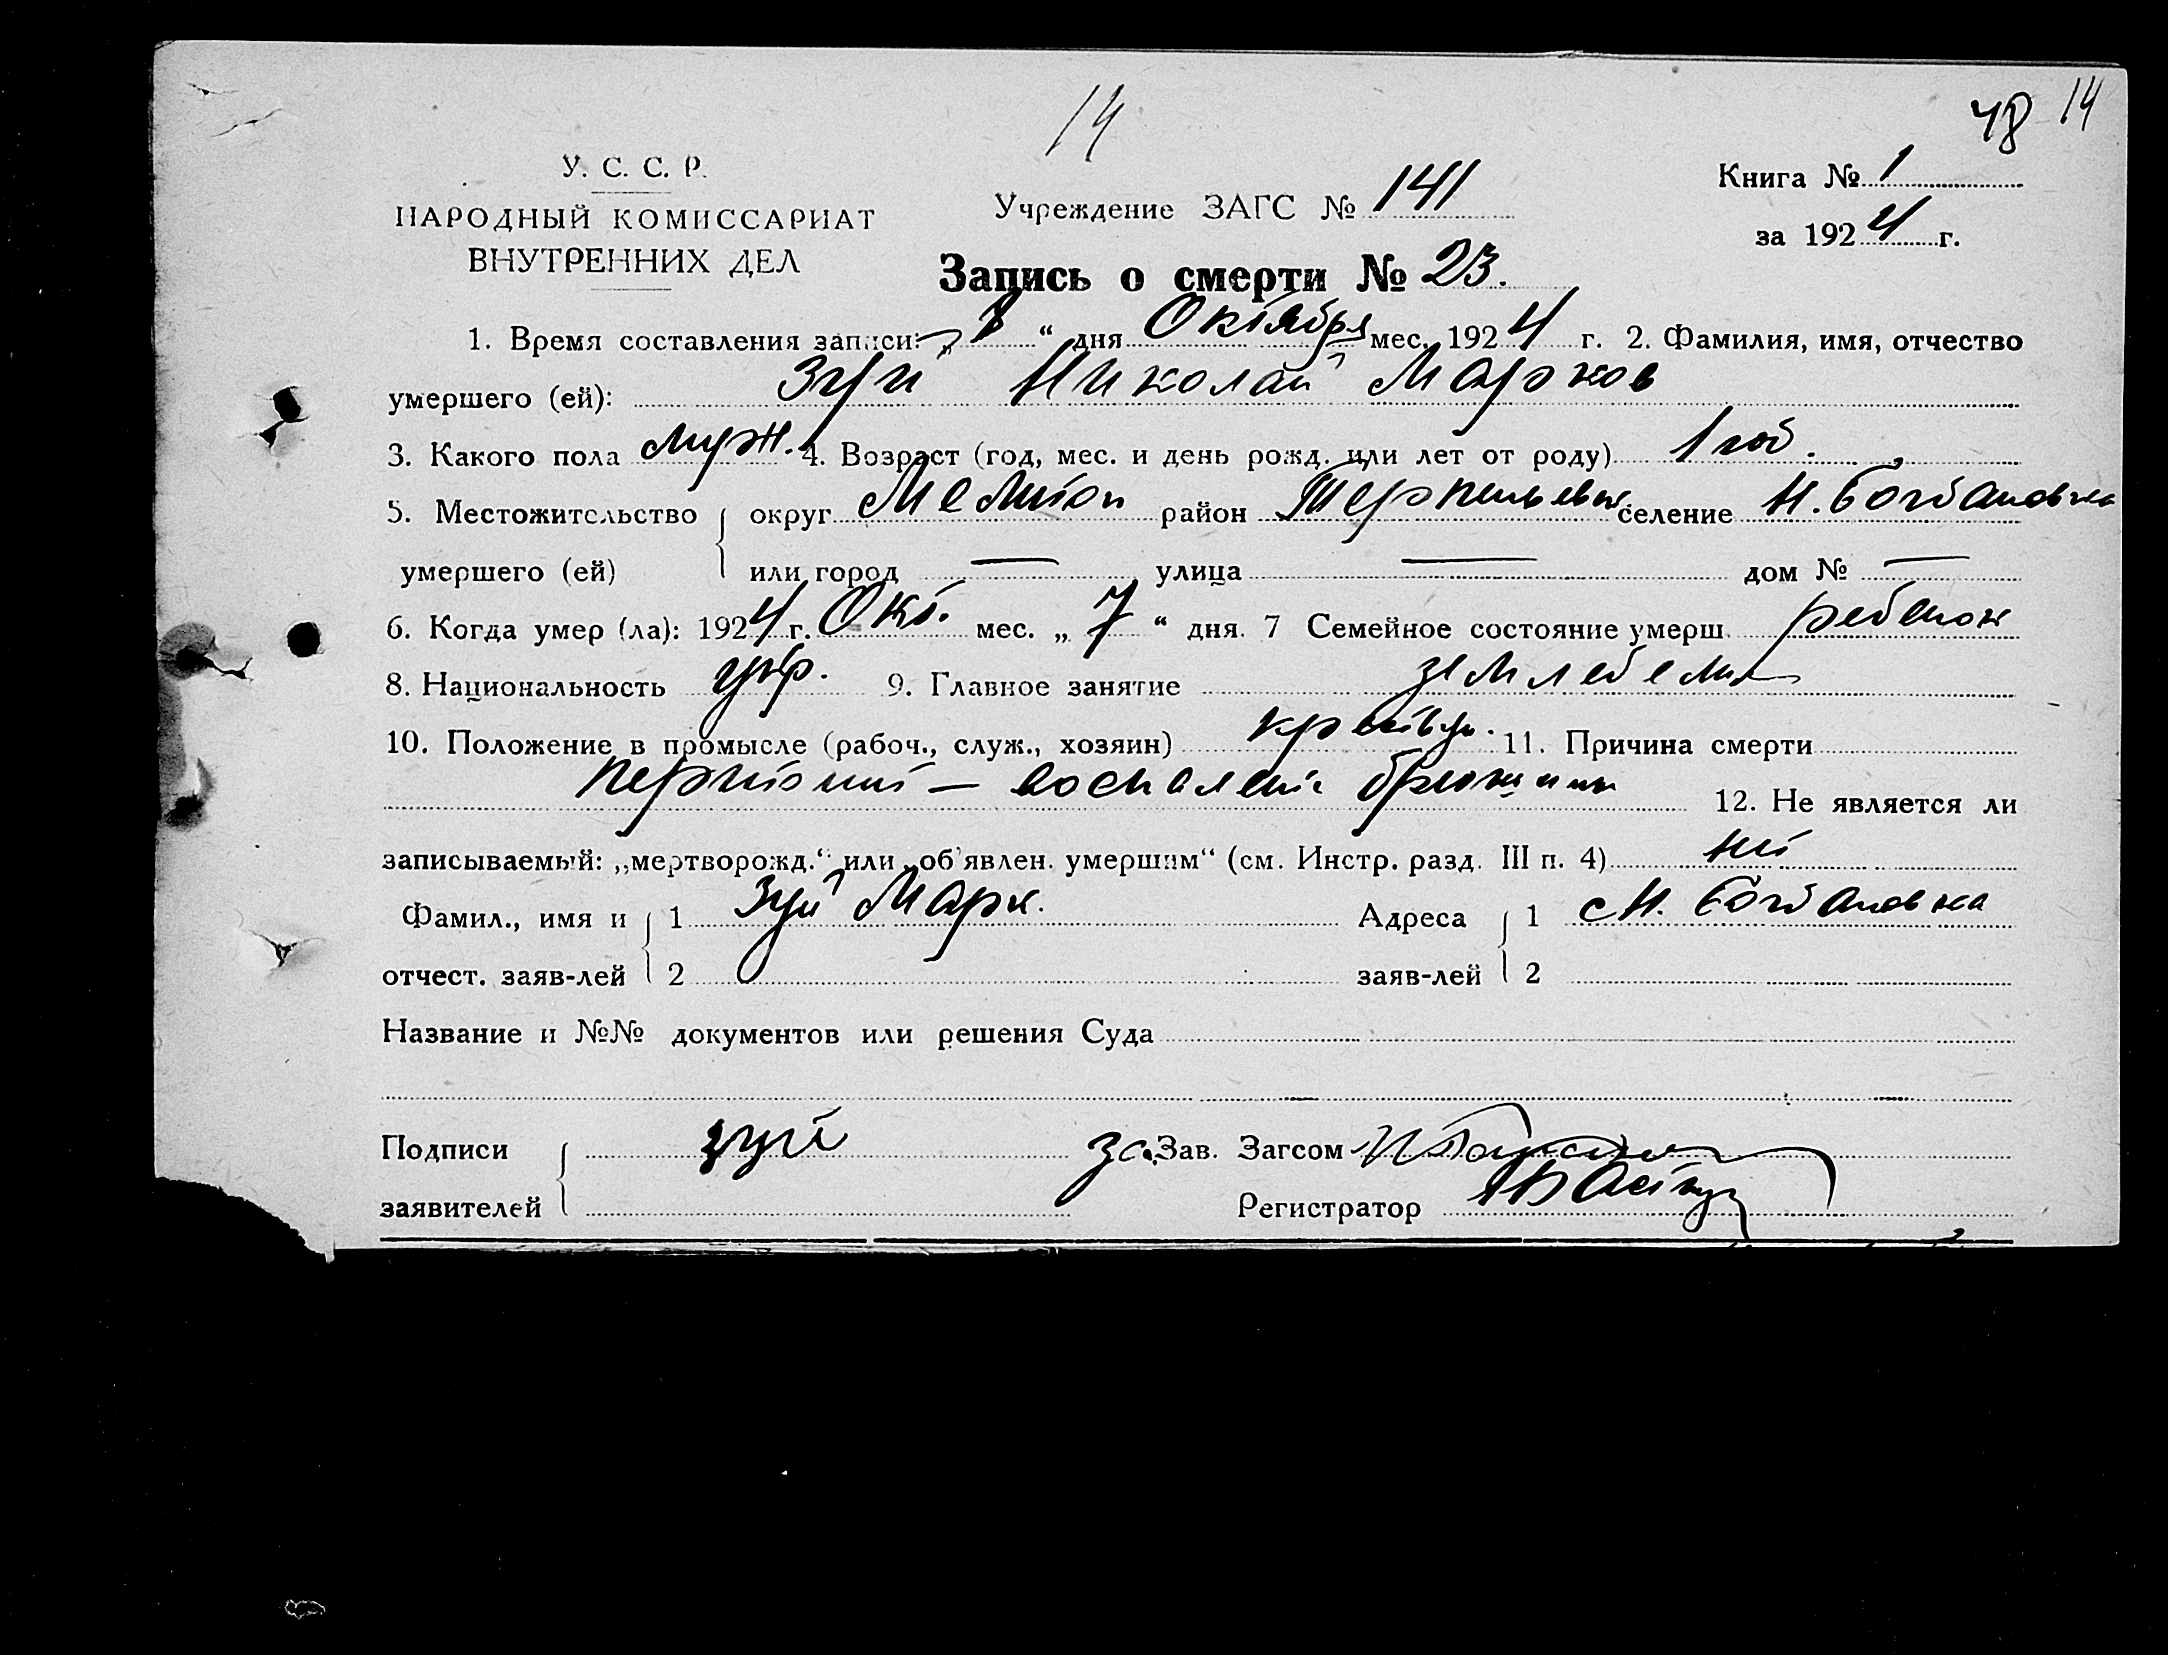 14
48 14
У. С. С. Р.
НАРОДНЫЙ КОМИССАРИАТ
ВНУТРЕННИХ ДЕЛ
Учреждение ЗАГС № 141
Книга № 1
за 1924 г.
Запись о смерти № 23.
1. Время составления записи: „ “ дня Октября мес. 1924 г. 2. Фамилия, имя, отчество
умершего (ей): Зуй Николай Марков
3. Какого пола муж. 4. Возраст (год, мес. и день рожд. или лет от роду) 1 год.
5. Местожительство округ Мелитоп район Терпеньевск селение Н. Богдановка
умершего (ей) или город — улица — дом № —
6. Когда умер (ла): 1924 г. Окт. мес. „ 7 “ дня. 7 Семейное состояние умерш. ребенок
8. Национальность укр. 9. Главное занятие земледелие
10. Положение в промысле (рабоч., служ., хозяин) 11. Причина смерти
перитонит — воспаление брюшины 12. Не является ли
записываемый: „мертворожд.“ или „об'явлен. умершим“ (см. Инстр. разд. III п. 4) нет
Фамил., имя и 1 Зуй Марк. Адреса 1 с Н. Богдановка
отчест. заяв-лей 2 заяв-лей 2
Название и №№ документов или решения Суда
Подписи Зуй за Зав. Загсом
заявителей Регистратор